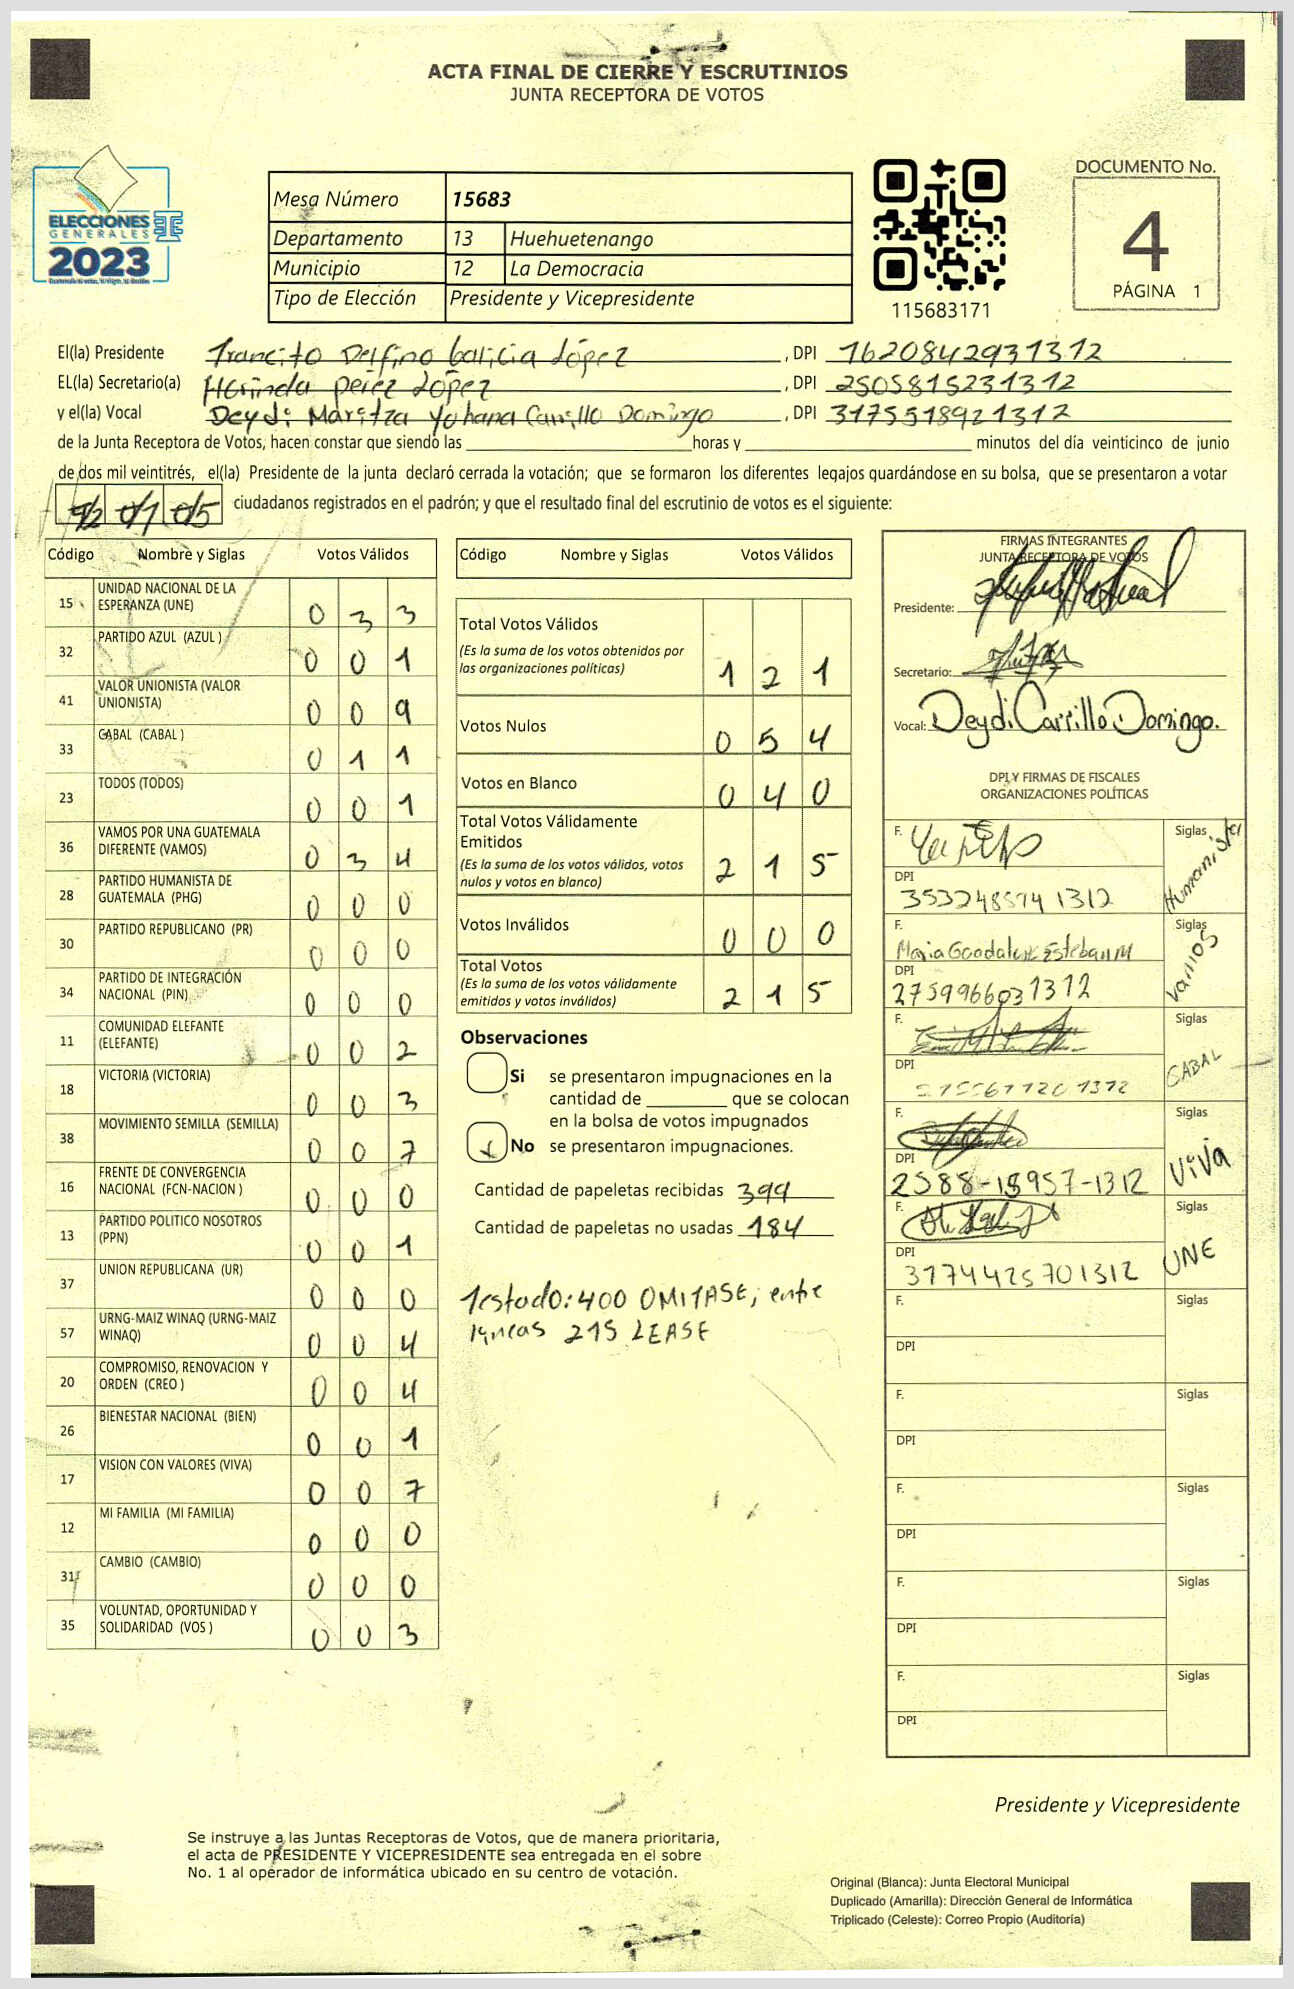 ACTA FINAL DE CIERRE Y ESCRUTINIOS
JUNTA RECEPTORA DE VOTOS
ELECCIONES
GENERALES
2023
Mesa Número 15683
Departamento 13 Huehuetenango
Municipio 12 La Democracia
Tipo de Elección Presidente y Vicepresidente
115683171
DOCUMENTO No.
4
PÁGINA 1
El(la) Presidente Trancito Delfino Galicia López, DPI 1620842931312
EL(la) Secretario(a) Horinda perez López, DPI 2505815231312
y el(la) Vocal Deydi Maritza Yohana Carrillo Domingo, DPI 3175518921312
de la Junta Receptora de Votos, hacen constar que siendo las horas y minutos del día veinticinco de junio
de dos mil veintitrés, el(la) Presidente de la junta declaró cerrada la votación; que se formaron los diferentes legajos guardándose en su bolsa, que se presentaron a votar
ciudadanos registrados en el padrón; y que el resultado final del escrutinio de votos es el siguiente:
Código Nombre y Siglas Votos Válidos
15 UNIDAD NACIONAL DE LA ESPERANZA (UNE) 0 3 3
32 PARTIDO AZUL (AZUL ) 0 0 1
41 VALOR UNIONISTA (VALOR UNIONISTA) 0 0 9
33 CABAL (CABAL ) 0 1 1
23 TODOS (TODOS) 0 0 1
36 VAMOS POR UNA GUATEMALA DIFERENTE (VAMOS) 0 3 4
28 PARTIDO HUMANISTA DE GUATEMALA (PHG) 0 0 0
30 PARTIDO REPUBLICANO (PR) 0 0 0
34 PARTIDO DE INTEGRACIÓN NACIONAL (PIN) 0 0 0
11 COMUNIDAD ELEFANTE (ELEFANTE) 0 0 2
18 VICTORIA (VICTORIA) 0 0 3
38 MOVIMIENTO SEMILLA (SEMILLA) 0 0 7
16 FRENTE DE CONVERGENCIA NACIONAL (FCN-NACION ) 0 0 0
13 PARTIDO POLITICO NOSOTROS (PPN) 0 0 1
37 UNION REPUBLICANA (UR) 0 0 0
57 URNG-MAIZ WINAQ (URNG-MAIZ WINAQ) 0 0 4
20 COMPROMISO, RENOVACION Y ORDEN (CREO ) 0 0 4
26 BIENESTAR NACIONAL (BIEN) 0 0 1
17 VISION CON VALORES (VIVA) 0 0 7
12 MI FAMILIA (MI FAMILIA) 0 0 0
31 CAMBIO (CAMBIO) 0 0 0
35 VOLUNTAD, OPORTUNIDAD Y SOLIDARIDAD (VOS ) 0 0 3
Código Nombre y Siglas Votos Válidos
Total Votos Válidos 1 2 1
(Es la suma de los votos obtenidos por
las organizaciones políticas)
Votos Nulos 0 5 4
Votos en Blanco 0 4 0
Total Votos Válidamente
Emitidos 2 1 5
(Es la suma de los votos válidos, votos
nulos y votos en blanco)
Votos Inválidos 0 0 0
Total Votos 2 1 5
(Es la suma de los votos válidamente
emitidos y votos inválidos)
Observaciones
Si se presentaron impugnaciones en la
cantidad de que se colocan
en la bolsa de votos impugnados
No se presentaron impugnaciones.
Cantidad de papeletas recibidas 399
Cantidad de papeletas no usadas 184
Testado: 400 OMITASE; entre
lineas 215 LEASE
FIRMAS INTEGRANTES
JUNTA RECEPTORA DE VOTOS
Presidente:
Secretario:
Vocal: Deydi Carrillo Domingo.
DPI Y FIRMAS DE FISCALES
ORGANIZACIONES POLÍTICAS
F. Siglas Humanista
DPI
F. Maria Guadalupe Esteban M Siglas Vamos
DPI 2759966031312
F. Siglas CABAL
DPI
F. Siglas ViVa
DPI 2588-15957-1312
F. Siglas UNE
DPI 3174425701312
F. Siglas
DPI
F. Siglas
DPI
F. Siglas
DPI
F. Siglas
DPI
F. Siglas
DPI
Presidente y Vicepresidente
Se instruye a las Juntas Receptoras de Votos, que de manera prioritaria,
el acta de PRESIDENTE Y VICEPRESIDENTE sea entregada en el sobre
No. 1 al operador de informática ubicado en su centro de votación.
Original (Blanca): Junta Electoral Municipal
Duplicado (Amarilla): Dirección General de Informática
Triplicado (Celeste): Correo Propio (Auditoría)